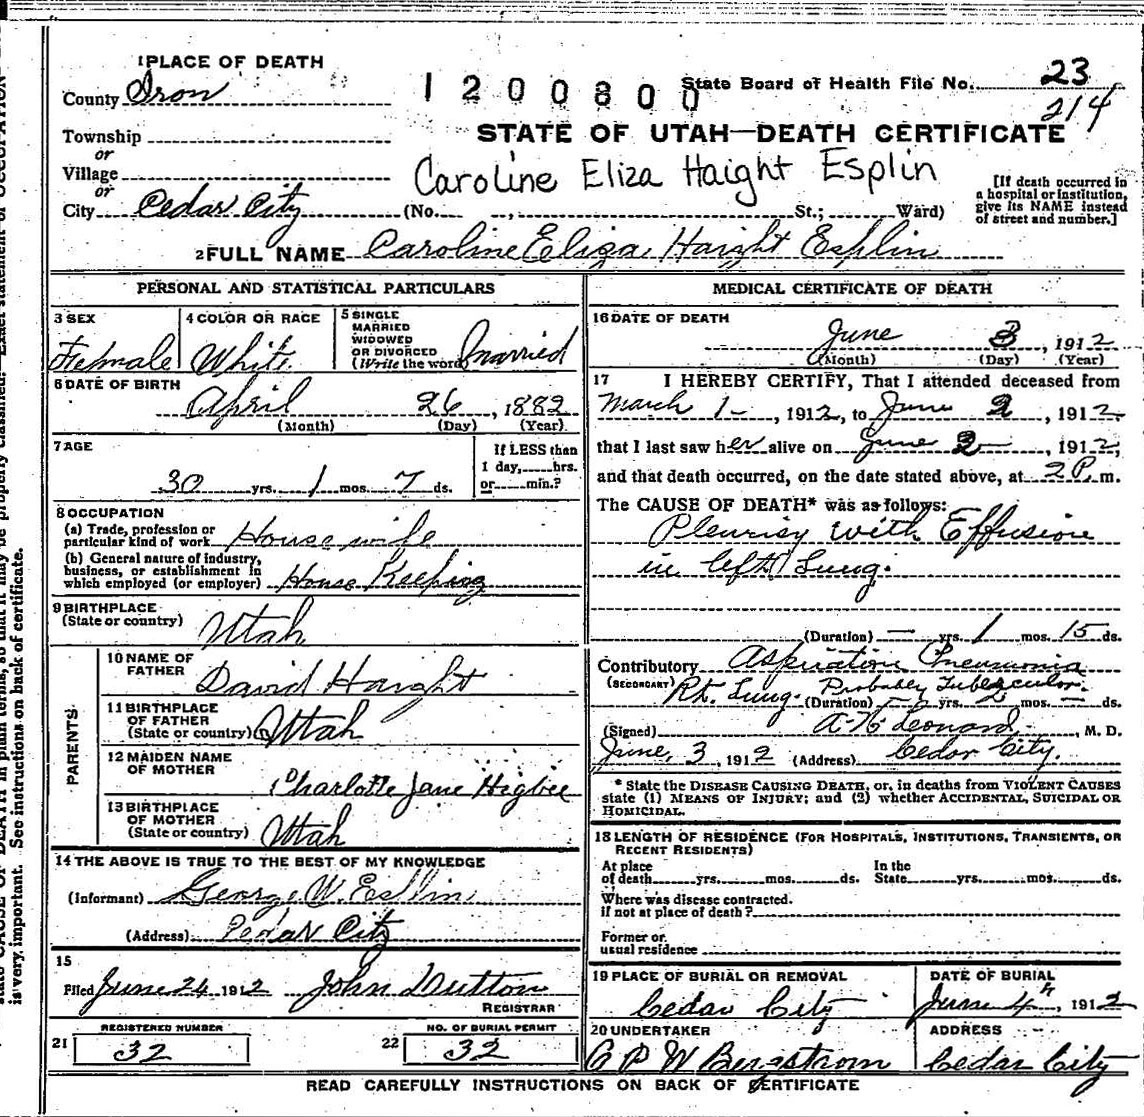 1 PLACE OF DEATH
County Iron
1200800
State Board of Health File No. 23
214
Township
or
Village
or
City Cedar City (No. , St.; Ward)
STATE OF UTAH—DEATH CERTIFICATE
Caroline Eliza Haight Esplin
[If death occurred in
a hospital or institution,
give its NAME instead
of street and number.]
2 FULL NAME Caroline Eliza Haight Esplin
PERSONAL AND STATISTICAL PARTICULARS
3 SEX
Female
4 COLOR OR RACE
White
5 SINGLE
MARRIED
WIDOWED
OR DIVORCED
(Write the word) Married
6 DATE OF BIRTH
April 26, 1882
(Month) (Day) (Year)
7 AGE
30 yrs. 1 mos. 7 ds.
If LESS than
1 day, hrs.
or min.?
8 OCCUPATION
(a) Trade, profession or
particular kind of work House wife
(b) General nature of industry,
business, or establishment in
which employed (or employer) House Keeping
9 BIRTHPLACE
(State or country) Utah
PARENTS
10 NAME OF
FATHER David Haight
11 BIRTHPLACE
OF FATHER
(State or country) Utah
12 MAIDEN NAME
OF MOTHER Charlotte Jane Higbee
13 BIRTHPLACE
OF MOTHER
(State or country) Utah
14 THE ABOVE IS TRUE TO THE BEST OF MY KNOWLEDGE
(Informant) George W. Esplin
(Address) Cedar City
15
Filed June 24 1912 John Dutton
REGISTRAR
REGISTERED NUMBER
21 32
NO. OF BURIAL PERMIT
22 32
MEDICAL CERTIFICATE OF DEATH
16 DATE OF DEATH
June 3, 1912
(Month) (Day) (Year)
17 I HEREBY CERTIFY, That I attended deceased from
March 1-, 1912, to June 2, 1912.
that I last saw her alive on June 2, 1912,
and that death occurred, on the date stated above, at 2 P. m.
The CAUSE OF DEATH* was as follows:
Pleurisy with Effusion
in left Lung.
(Duration) — yrs. 1 mos. 15 ds.
Contributory Aspiration Pneumonia
(SECONDARY) Rt. Lung. Probably Tubercular.
(Duration) — yrs. 2 mos. — ds.
(Signed) A. N. Leonard, M. D.
June, 3, 1912 (Address) Cedar City.
* State the DISEASE CAUSING DEATH, or, in deaths from VIOLENT CAUSES
state (1) MEANS OF INJURY; and (2) whether ACCIDENTAL, SUICIDAL OR
HOMICIDAL.
18 LENGTH OF RESIDENCE (FOR HOSPITALS, INSTITUTIONS, TRANSIENTS, OR
RECENT RESIDENTS)
At place
of death yrs. mos. ds.
In the
State yrs. mos. ds.
Where was disease contracted.
if not at place of death?
Former or
usual residence
19 PLACE OF BURIAL OR REMOVAL
Cedar City
DATE OF BURIAL
June 4th, 1912
20 UNDERTAKER
C P W Bergstrom
ADDRESS
Cedar City
READ CAREFULLY INSTRUCTIONS ON BACK OF CERTIFICATE
is very important. See instructions on back of certificate.